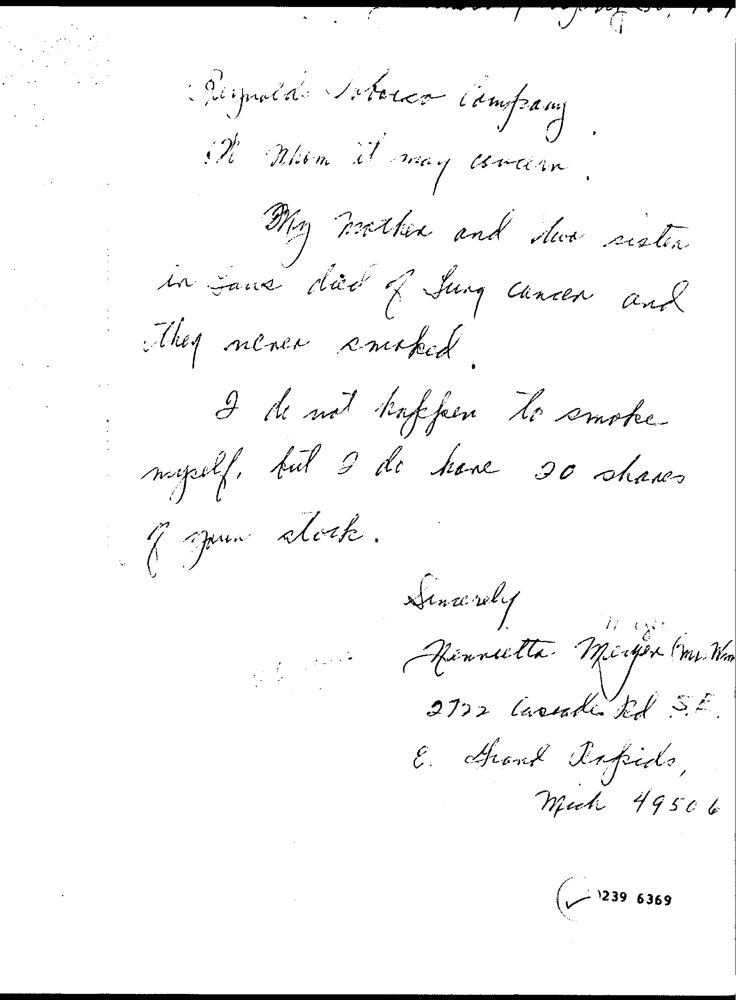 Reynolds Tobacco Company
To Whom it may concern.
My mother and two sister
in laws died of Lung cancer and
they never smoked.
I do not happen to smoke
myself, but I do have 20 shares
of your stock.
Sincerely
Henrietta Meyer (Mrs. Wm
2722 Cascade Rd S.E.
E. Grand Rapids,
Mich 49506
239 6369